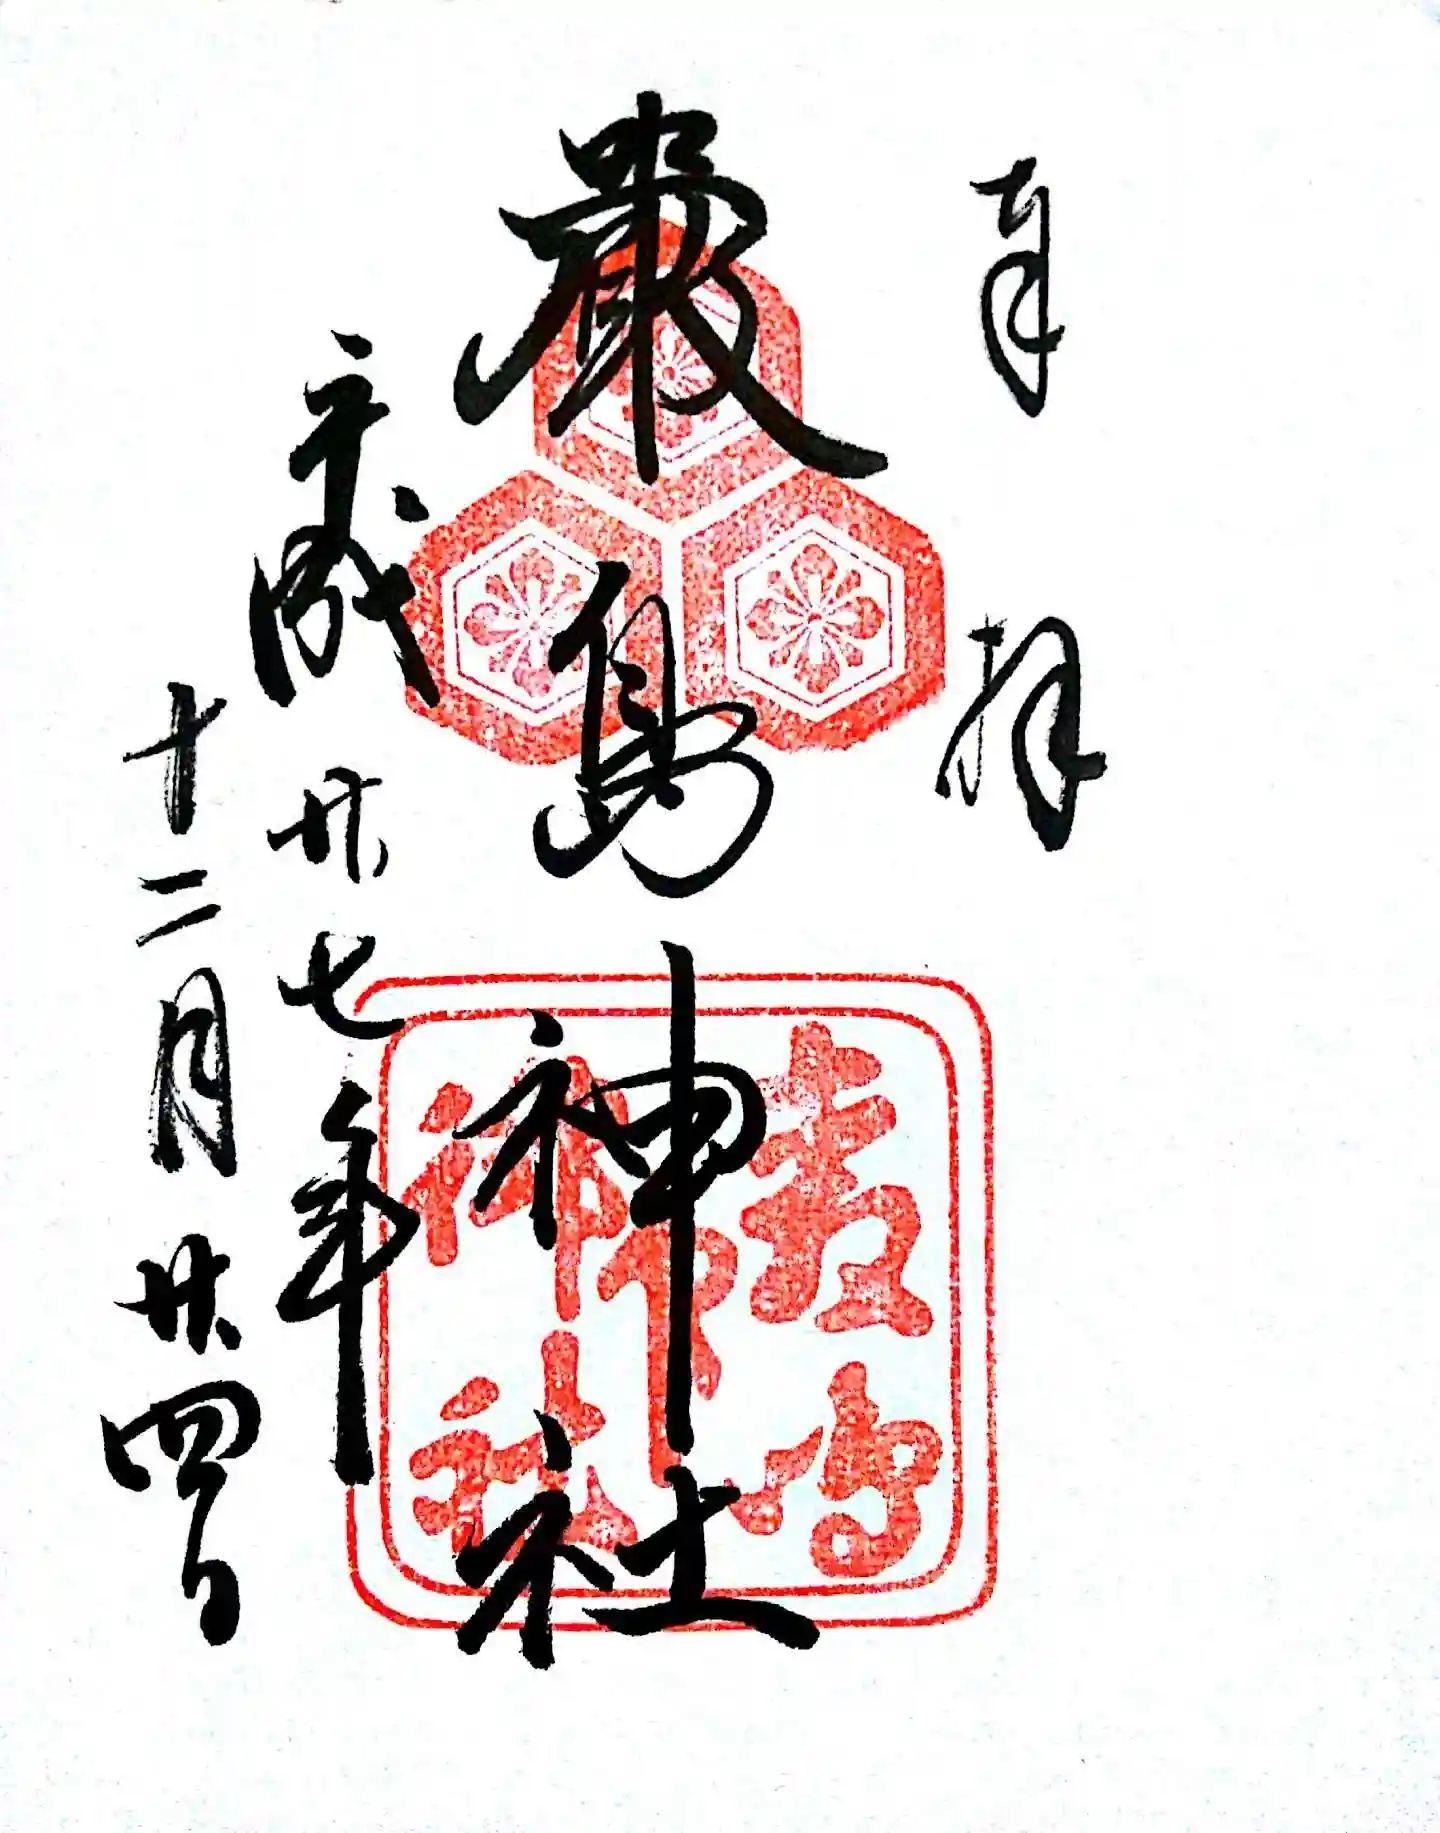 奉拝
嚴島神社
平成廿七年
十二月廿四日
嚴島
神社